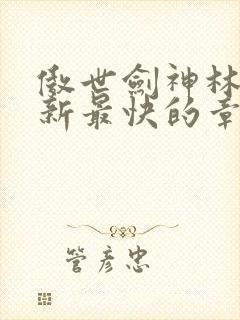 傲世劍神林
新最快的章
管彥忠